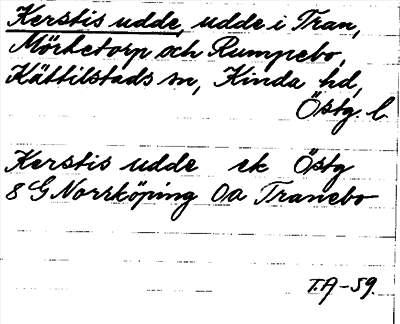 Kerstis udde, udde i Tran,
Mörketorp och Rumpebo,
Kättilstads sn, Kinda hd,
Östg. l.
Kerstis udde ek Östg
8 G Norrköping 0a Tranebo
T.A-59.